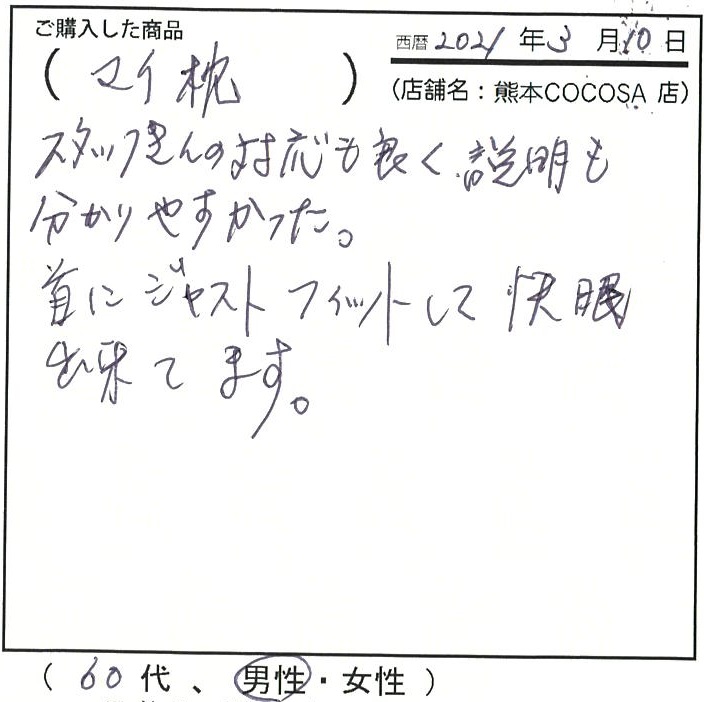 ご購入した商品
西暦2021年3月10日
(マイ枕)
(店舗名：熊本COCOSA店)
スタッフさんの対応も良く説明も
分かりやすかった。
首にジャストフィットして快眠
出来てます。
(60代、男性・女性)